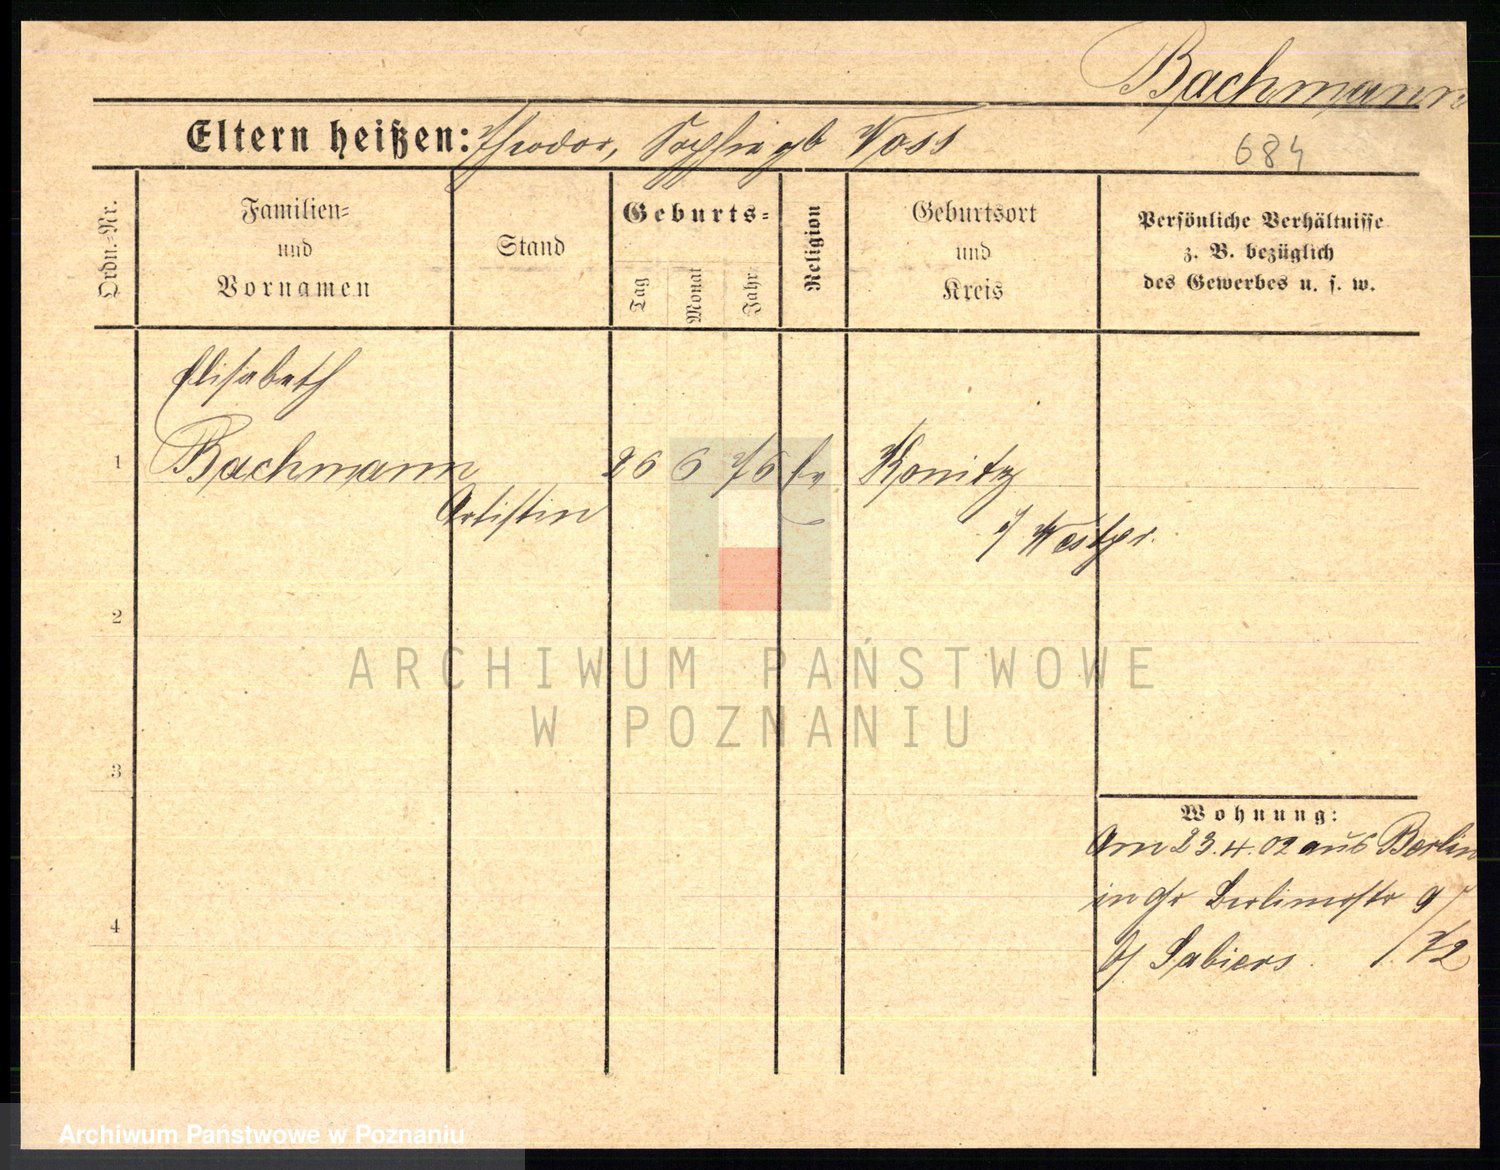 Bachmann
Eltern heißen: Theodor, Sophie gb Voss
684
Ordn.-Nr.
Familien-
und
Vornamen
Stand
Geburts-
Tag
Monat
Jahr
Religion
Geburtsort
und
Kreis
Persönliche Verhältnisse
z. B. bezüglich
des Gewerbes u. s. w.
Elisabeth
1 Bachmann 26 6 76 Ev Konitz
Artistin
i/ Westpr.
2
ARCHIWUM PAŃSTWOWE
W POZNANIU
3
Wohnung:
Am 23.4.02 aus Berlin
in Gr Berlinerstr 9/
4
b/ Sabiers. /. 72
Archiwum Państwowe w Poznaniu